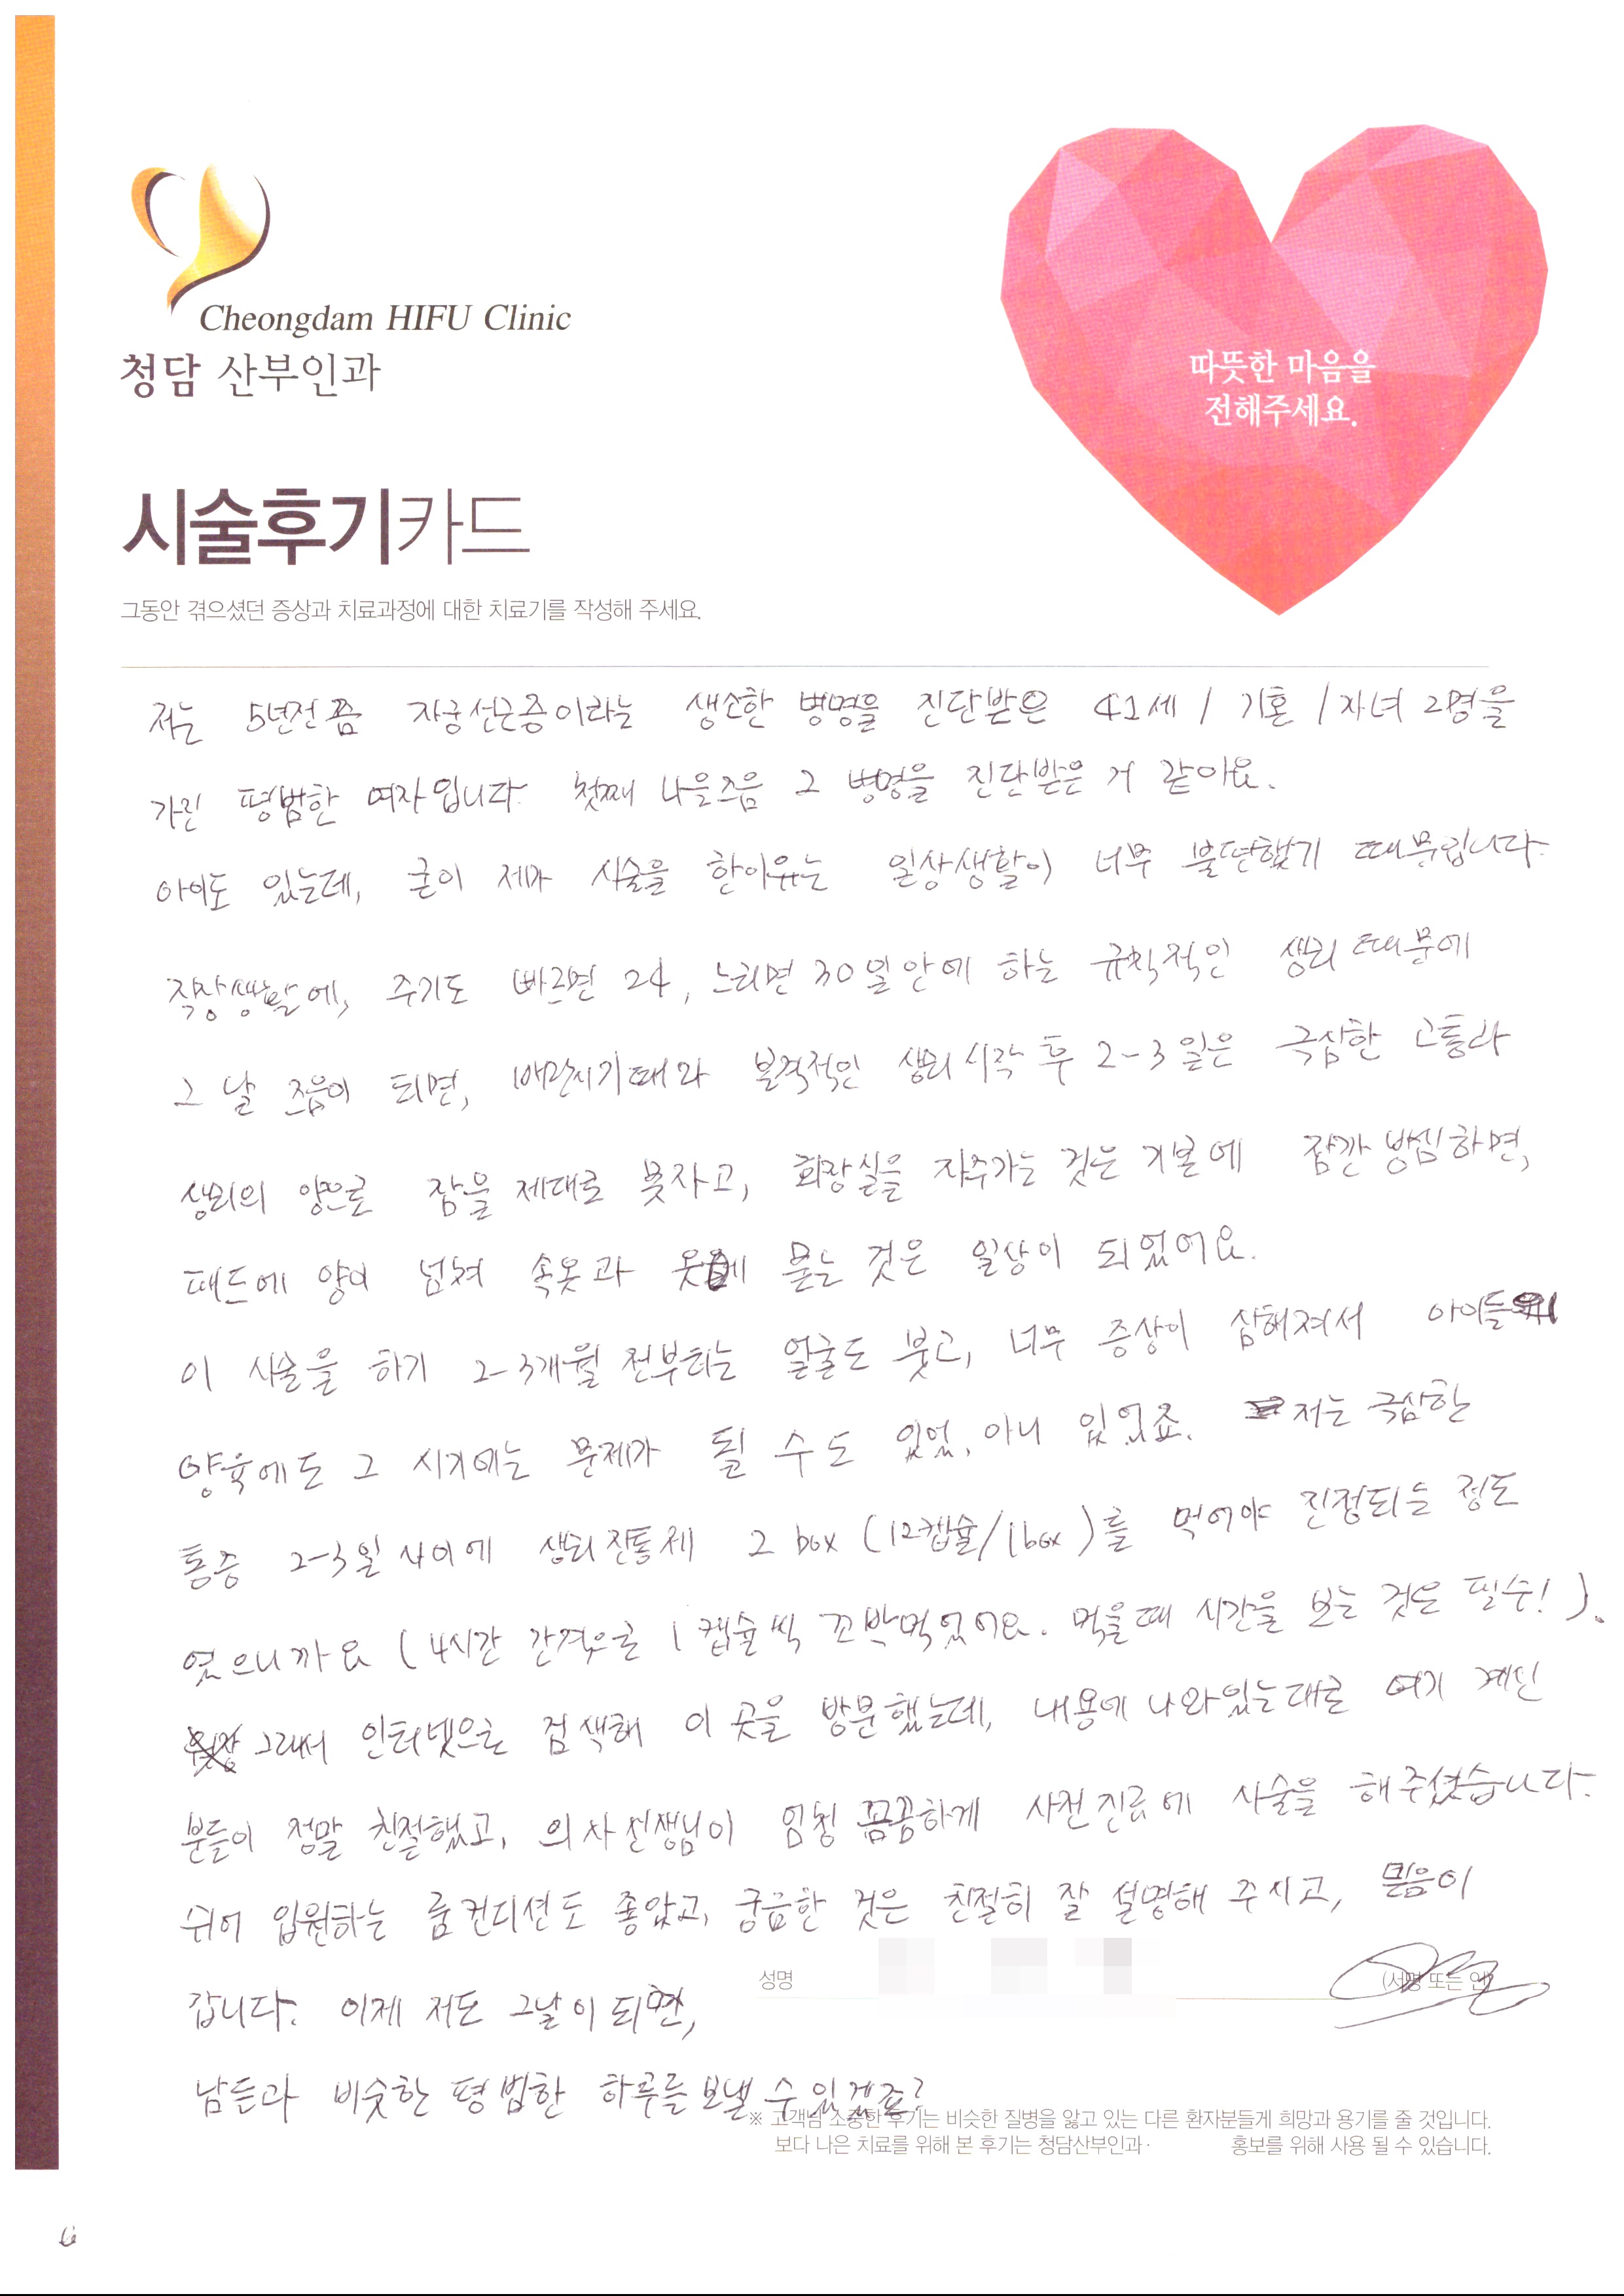 Cheongdam HIFU Clinic
청담 산부인과
따뜻한 마음을
전해주세요.
시술후기카드
그동안 겪으셨던 증상과 치료과정에 대한 치료기를 작성해 주세요.
저는 5년전쯤 자궁선근증이라는 생소한 병명을 진단받은 41세 / 기혼 / 자녀 2명을
가진 평범한 여자입니다. 첫째 나을즈음 그 병명을 진단받은 거 같아요.
아이도 있는데, 굳이 제가 시술을 한이유는 일상생활이 너무 불편했기 때문입니다.
직장생활에, 주기도 빠르면 24, 느리면 30일안에 하는 규칙적인 생리 때문에
그 날 즈음이 되면, 배란시기때와 본격적인 생리시작 후 2-3일은 극심한 고통과
생리의 양으로 잠을 제대로 못자고, 화장실을 자주가는 것은 기본에 잠깐 방심하면,
패드에 양이 넘쳐 속옷과 옷에 묻는 것은 일상이 되었어요.
이 시술을 하기 2-3개월 전부터는 얼굴도 붓고, 너무 증상이 심해져서 아이들
양육에도 그 시기에는 문제가 될 수도 있었, 아니 있었죠. 저는 극심한
통증 2-3일 사이에 생리진통제 2 box (12캡슐/1box)를 먹어야 진정되는 정도
였으니까요 (4시간 간격으로 1캡슐씩 꼬박먹었어요. 먹을때 시간을 보는 것은 필수!).
그래서 인터넷으로 검색해 이 곳을 방문했는데, 내용에 나와있는대로 여기 계신
분들이 정말 친절했고, 의사선생님이 엄청 꼼꼼하게 사전진료에 시술을 해주셨습니다.
쉬어 입원하는 룸컨디션도 좋았고, 궁금한 것은 친절히 잘 설명해 주시고, 믿음이
갑니다. 이제 저도 그날이 되면,
성명
(서명 또는 인)
남들과 비슷한 평범한 하루를 보낼 수 있겠죠?
※ 고객님 소중한 후기는 비슷한 질병을 앓고 있는 다른 환자분들게 희망과 용기를 줄 것입니다.
보다 나은 치료를 위해 본 후기는 청담산부인과· 홍보를 위해 사용 될 수 있습니다.